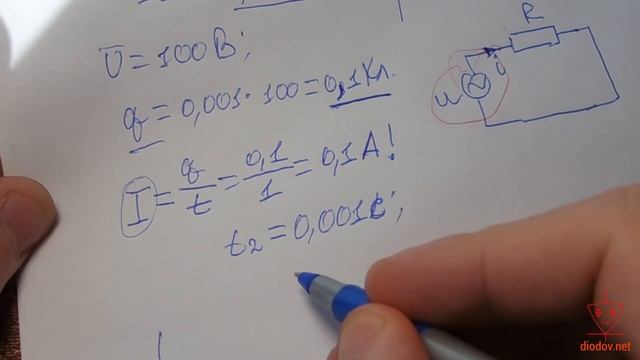 U = 100 В;
q = 0,001 · 100 = 0,1 Кл.
I = q/t = 0,1/1 = 0,1 А!
t₂ = 0,001 с;
R
i
u
diodov.net